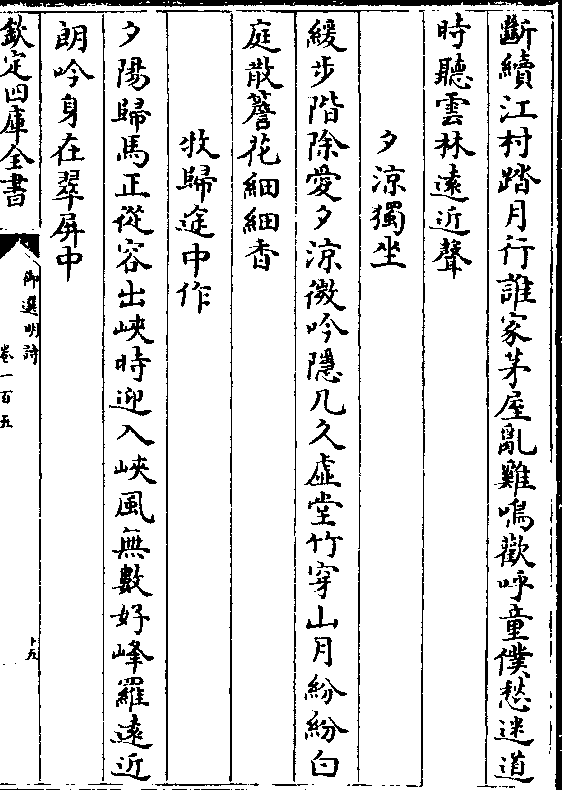 斷續江村踏月行誰家茅屋亂雞鳴歡呼童僕愁迷道
時聽雲林遠近聲
夕涼獨坐
緩步階除愛夕涼微吟隱几久虛堂竹穿山月紛紛白
庭散簷花細細香
牧歸途中作
夕陽歸馬正從容出峽時迎入峽風無數好峰羅遠近
朗吟身在翠屏中
欽定四庫全書
御選明詩
卷一百五
十五